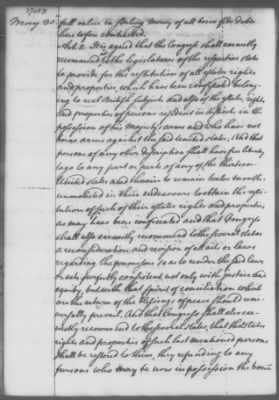 1783
May 30.
full value in sterling money of all bona fide debts
heretofore contracted.
Art. 5. It is agreed that the Congress shall earnestly
recommend to the legislatures of the respective states
to provide for the restitution of all estates rights
and properties, which have been confiscated belong-
ing to real British subjects and also of the estates, rights
and properties of persons resident in districts in the
possession of his Majestys arms and who have not
borne arms against the said United states, & that
persons of any other description shall have free liberty
to go to any part or parts of any of the thirteen
United states and therein to remain twelve months
unmolested in their endeavours to obtain the resti-
tution of such of their estates rights and properties
as may have been confiscated and that Congress
shall also earnestly recommend to the several states
a reconsideration and revision of all acts or laws
regarding the premises so as to render the said laws
or acts perfectly consistent not only with justice and
equity, but with that spirit of conciliation which
on the return of the blessings of peace should uni-
versally prevail. And that Congress shall also ear-
nestly recommend to the several states, that the estates
rights and properties of such last mentioned persons
shall be restored to them, they refunding to any
persons who may be now in possession the bona